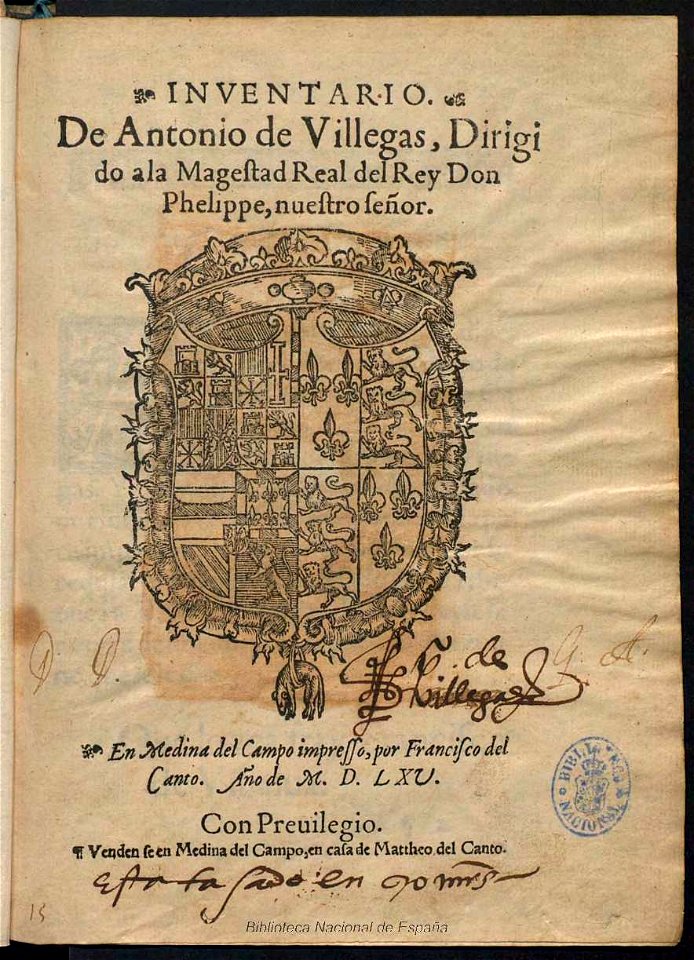 INVENTARIO.
De Antonio de Villegas, Dirigi
do a la Mageſtad Real del Rey Don
Phelippe, nueſtro ſeñor.
D. D. G. A.
de
villegas
En Medina del Campo impreſſo, por Franciſco del
Canto. Año de M. D. LXV.
Con Preuilegio.
¶ Venden ſe en Medina del Campo, en caſa de Mattheo del Canto.
Esta tasado en 90 mrs
BIBLIOTECA NACIONAL
15
Biblioteca Nacional de España